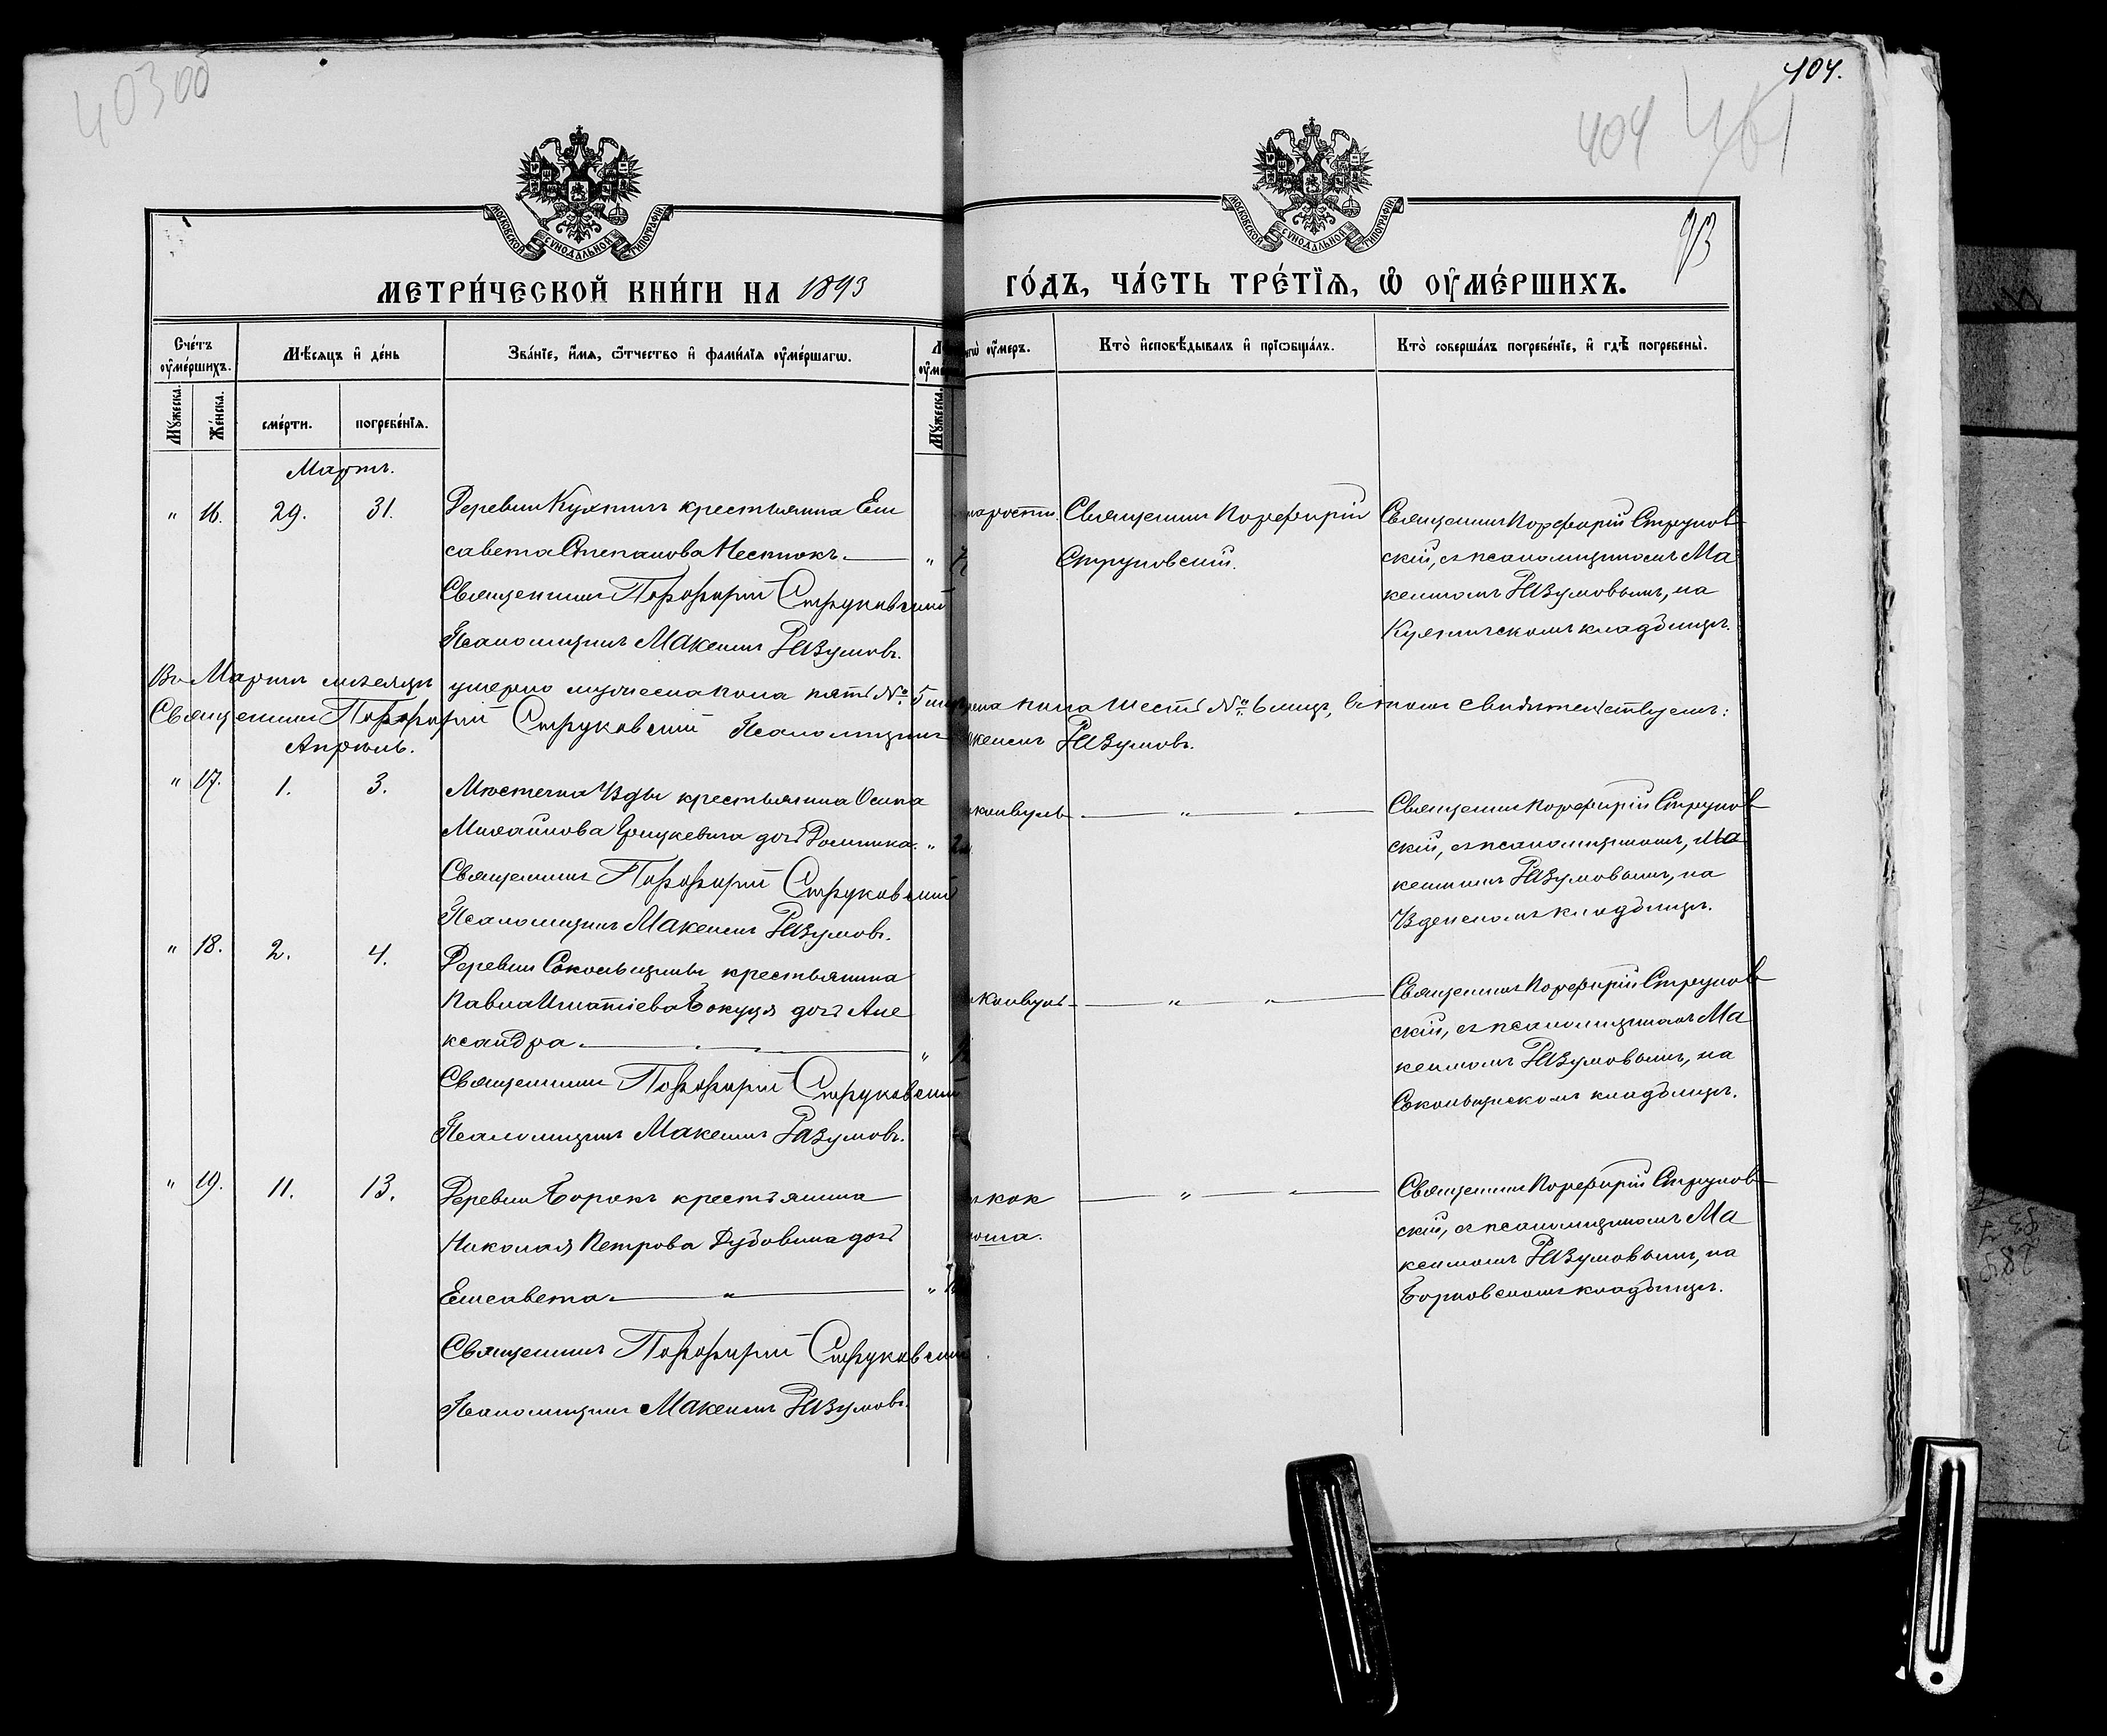 403об
104.
404
МОСКОВСКОЙ СѴНОДАЛЬНОЙ ТИПОГРАФІИ
МОСКОВСКОЙ СѴНОДАЛЬНОЙ ТИПОГРАФІИ
93
МЕТРИ́ЧЕСКОЙ КНИ́ГИ НА 1893
ГО́ДЪ, ЧА́СТЬ ТРЕ́ТЇѦ, Ѡ҆ ОУ҆МЕ́РШИХЪ.
Сче́тъ оу҆ме́ршихъ.
Мѣ́сяцъ и҆ де́нь
Зва́нїе, и҆́мѧ, ѻ҆́тчество и҆ фами́лїѧ оу҆ме́ршагѡ.
оу҆́меръ.
Кто̀ и҆сповѣ́дывалъ и҆ прїѡбща́лъ.
Кто̀ соверша́лъ погребе́нїе, и҆ гдѣ̀ погребены̀.
Мꙋ́жеска.
Же́нска.
сме́рти.
погребе́нїѧ.
Мꙋ́жеска.
Мартъ.
" 16. 29. 31.
Деревни Крестьянина Ели
савета Степанова Нестюкъ. "
Священникъ Порфирій Струковскій
Псаломщикъ Максимъ Разумовъ.
Священникъ Порфирій
Струковскій.
Священникъ Порфирій Струков
скій, съ псаломщикомъ Ма
ксимомъ Разумовымъ, на
кладбищѣ.
Въ Мартѣ мѣсяцѣ умерло мужеска пола пять № 5 пола шесть № 6 лицъ, въ томъ свидѣтельствуемъ:
Священникъ Порфирій Струковскій Псаломщикъ Разумовъ.
Апрѣль.
" 17. 1. 3.
Мѣстечка Узды крестьянина Осипа
Михайлова дочь "
Священникъ Порфирій Струковскій
Псаломщикъ Максимъ Разумовъ.
" "
Священникъ Порфирій Струков
скій, съ псаломщикомъ, Ма
ксимомъ Разумовымъ, на
Узденскомъ кладбищѣ.
" 18. 2. 4.
Деревни Сокольщины крестьянина
Павла Игнатіева дочь Але
ксандра. "
Священникъ Порфирій Струковскій
Псаломщикъ Максимъ Разумовъ.
" "
Священникъ Порфирій Струков
скій, съ псаломщикомъ Ма
ксимомъ Разумовымъ, на
кладбищѣ.
" 19. 11. 13.
Деревни Борокъ крестьянина
Николая Петрова дочь
Елисавета. " "
Священникъ Порфирій Струковскій
Псаломщикъ Максимъ Разумовъ.
" "
Священникъ Порфирій Струков
скій, съ псаломщикомъ Ма
ксимомъ Разумовымъ, на
Борковскомъ кладбищѣ.